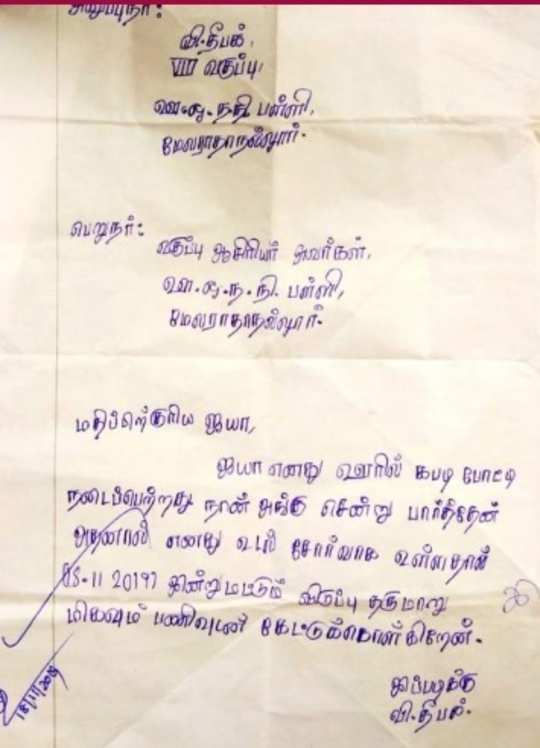 அனுப்புநர்:
வி.தீபக்,
VIII வகுப்பு,
ஊ.ஒ.ந.நி.பள்ளி,
மேலராதாநல்லூர்.
பெறுநர்:
வகுப்பு ஆசிரியர் அவர்கள்,
ஊ.ஒ.ந.நி. பள்ளி,
மேலராதாநல்லூர்.
மதிப்பிற்குரிய ஐயா,
ஐயா எனது ஊரில் கபடி போட்டி
நடைப்பெற்றது நான் அங்கு சென்று பார்த்தேன்
அதனால் எனது உடல் சோர்வாக உள்ளதால்
(15-11 2019) இன்று மட்டும் விடுப்பு தருமாறு
மிகவும் பணிவுடன் கேட்டுக்கொள்கிறேன்.
இப்படிக்கு
வி.தீபக்.